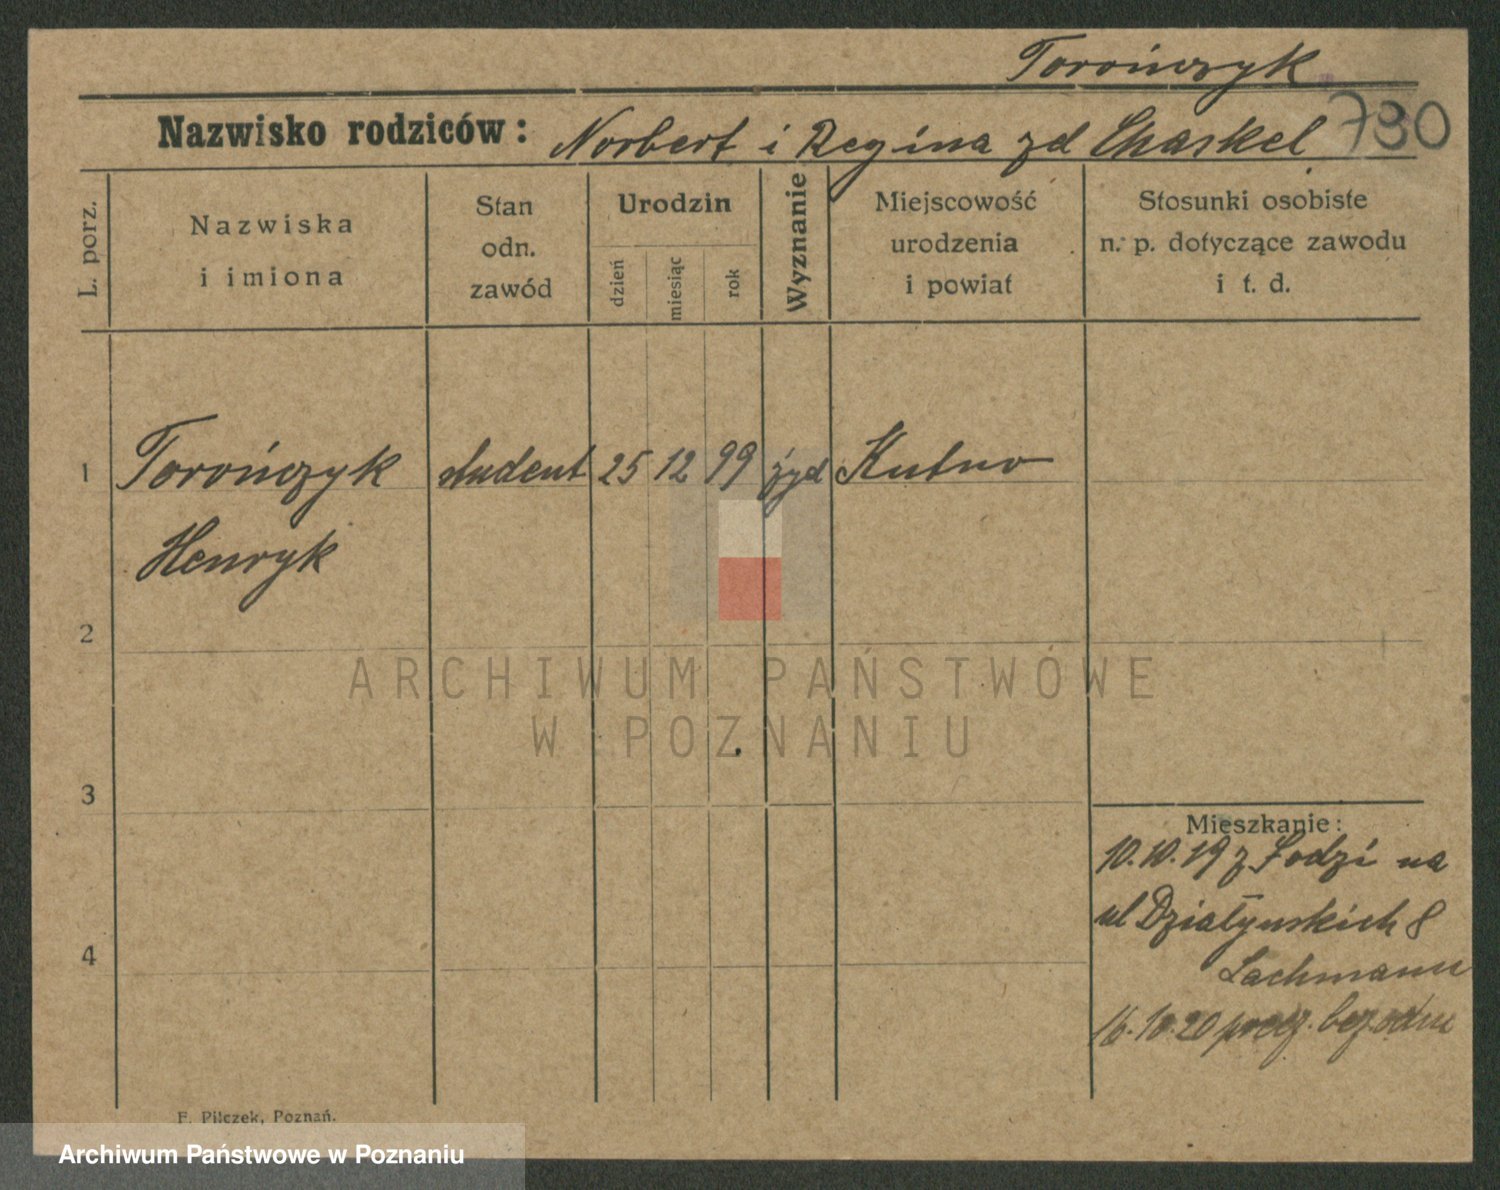 Torończyk
730
Nazwisko rodziców: Norbert i Regina zd Chaskel
L. porz.
Nazwiska
i imiona
Stan
odn.
zawód
Urodzin
dzień
miesiąc
rok
Wyznanie
Miejscowość
urodzenia
i powiat
Stosunki osobiste
n. p. dotyczące zawodu
i t. d.
1 Torończyk student 25 12 99 żyd Kutno
Henryk
2
ARCHIWUM PAŃSTWOWE
W POZNANIU
3
Mieszkanie:
10.10.19 z Łodzi na
ul Działyńskich 8
Lachmann
4
16.10.20 bez odm
F. Pilczek, Poznań.
Archiwum Państwowe w Poznaniu